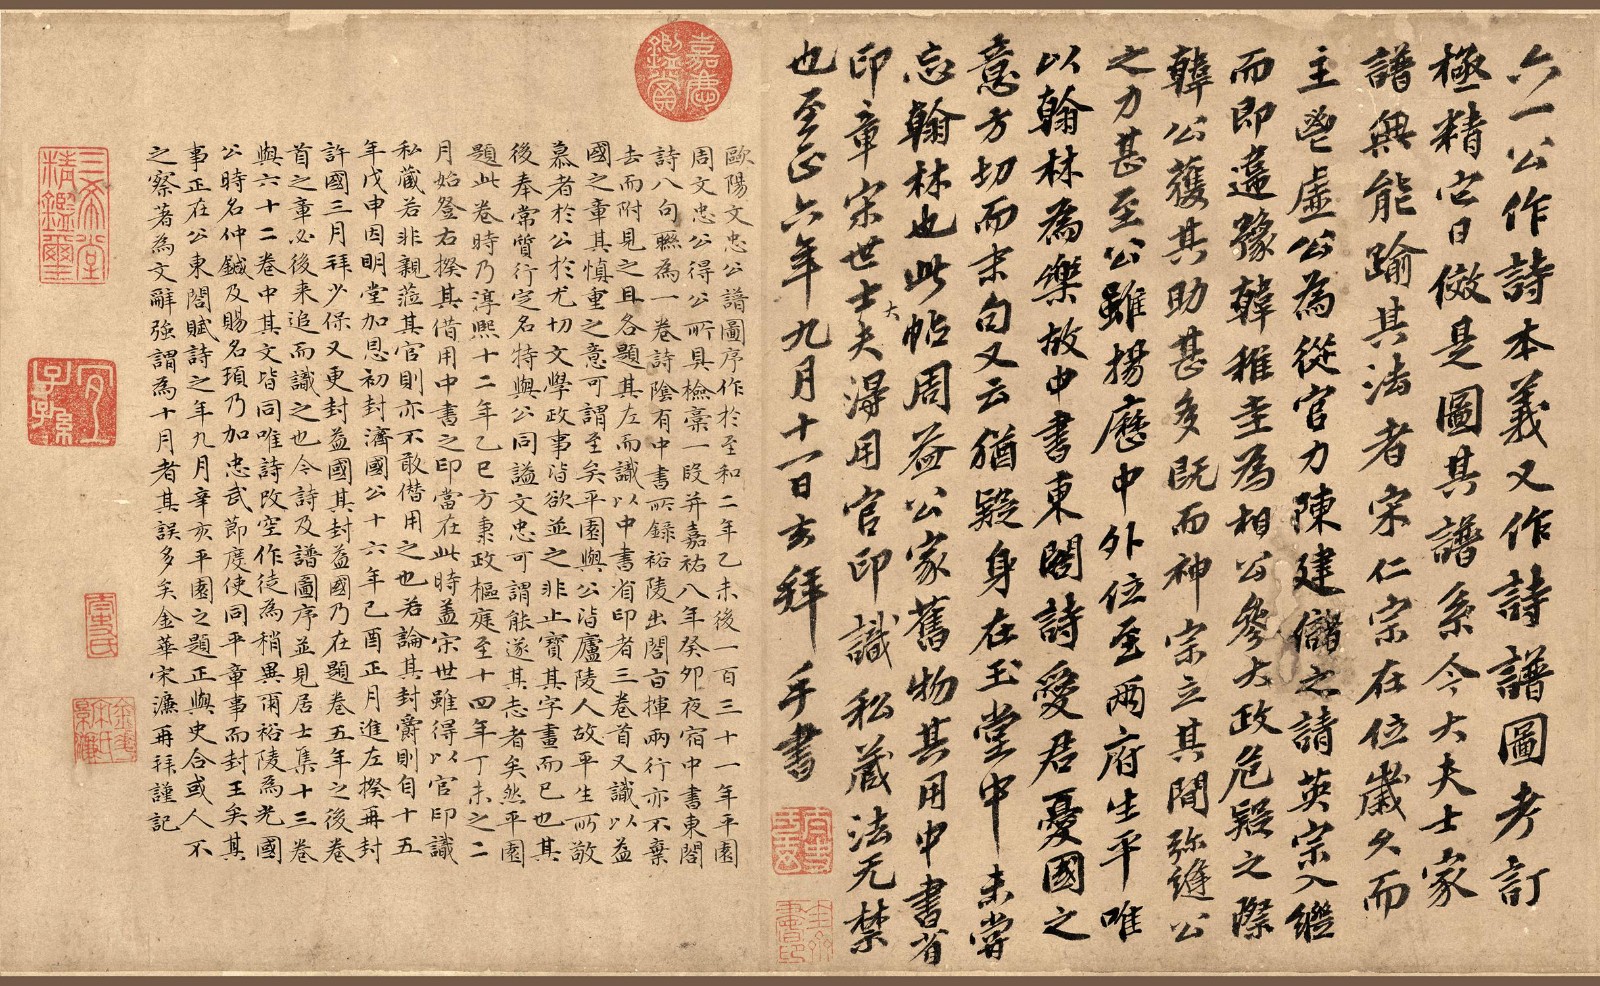 六一公作詩本義又作詩譜圖考訂
極精它日倣是圖其譜系今大夫士家
譜無能踰其法者宋仁宗在位歲久而
主鬯虛公為從官力陳建儲之請英宗入繼
而即違豫韓稚圭為相公參大政危疑之際
韓公獲其助甚多既而神宗立其間弥縫公
之力甚至公雖揚歷中外位至兩府生平唯
以翰林為樂故中書東閤詩愛君憂國之
意方切而末句又云猶疑身在玉堂中未嘗
忘翰林也此帖周益公家舊物其用中書省
印章宋世士大夫得用官印識私蔵法无禁
也至正六年九月十一日玄拜手書
歐陽文忠公譜圖序作於至和二年乙未後一百三十一年平園
周文忠公得公所具檢稾一段并嘉祐八年癸卯夜宿中書東閤
詩八句聮為一卷詩陰有中書所録裕陵出閤百揮兩行亦不棄
去而附見之且各題其左而識以中書省印者三卷首又識以益
國之章其慎重之意可謂至矣平園與公皆廬陵人故平生所敬
慕者於公於尤切文學政事皆欲並之非止寶其字畫而已也其
後奉常質行定名特與公同謚文忠可謂能遂其志者矣然平園
題此卷時乃淳熙十二年乙巳方秉政樞庭至十四年丁未之二
月始登右揆其借用中書之印當在此時盖宋世雖得以官印識
私蔵若非親蒞其官則亦不敢僭用之也若論其封爵則自十五
年戊申因明堂加恩初封濟國公十六年己酉正月進左揆再封
許國三月拜少保又更封益國其封益國乃在題卷五年之後卷
首之章必後来追而識之也今詩及譜圖序並見居士集十三卷
與六十二卷中其文皆同唯詩改空作徒為稍異爾裕陵為光國
公時名仲鍼及賜名頊乃加忠武節度使同平章事而封王矣其
事正在公東閤賦詩之年九月辛亥平園之題正與史合或人不
之察著為文辭強謂為十月者其誤多矣金華宋濂再拜謹記
嘉慶鑑賞
三希堂精鑑璽
宜子孫